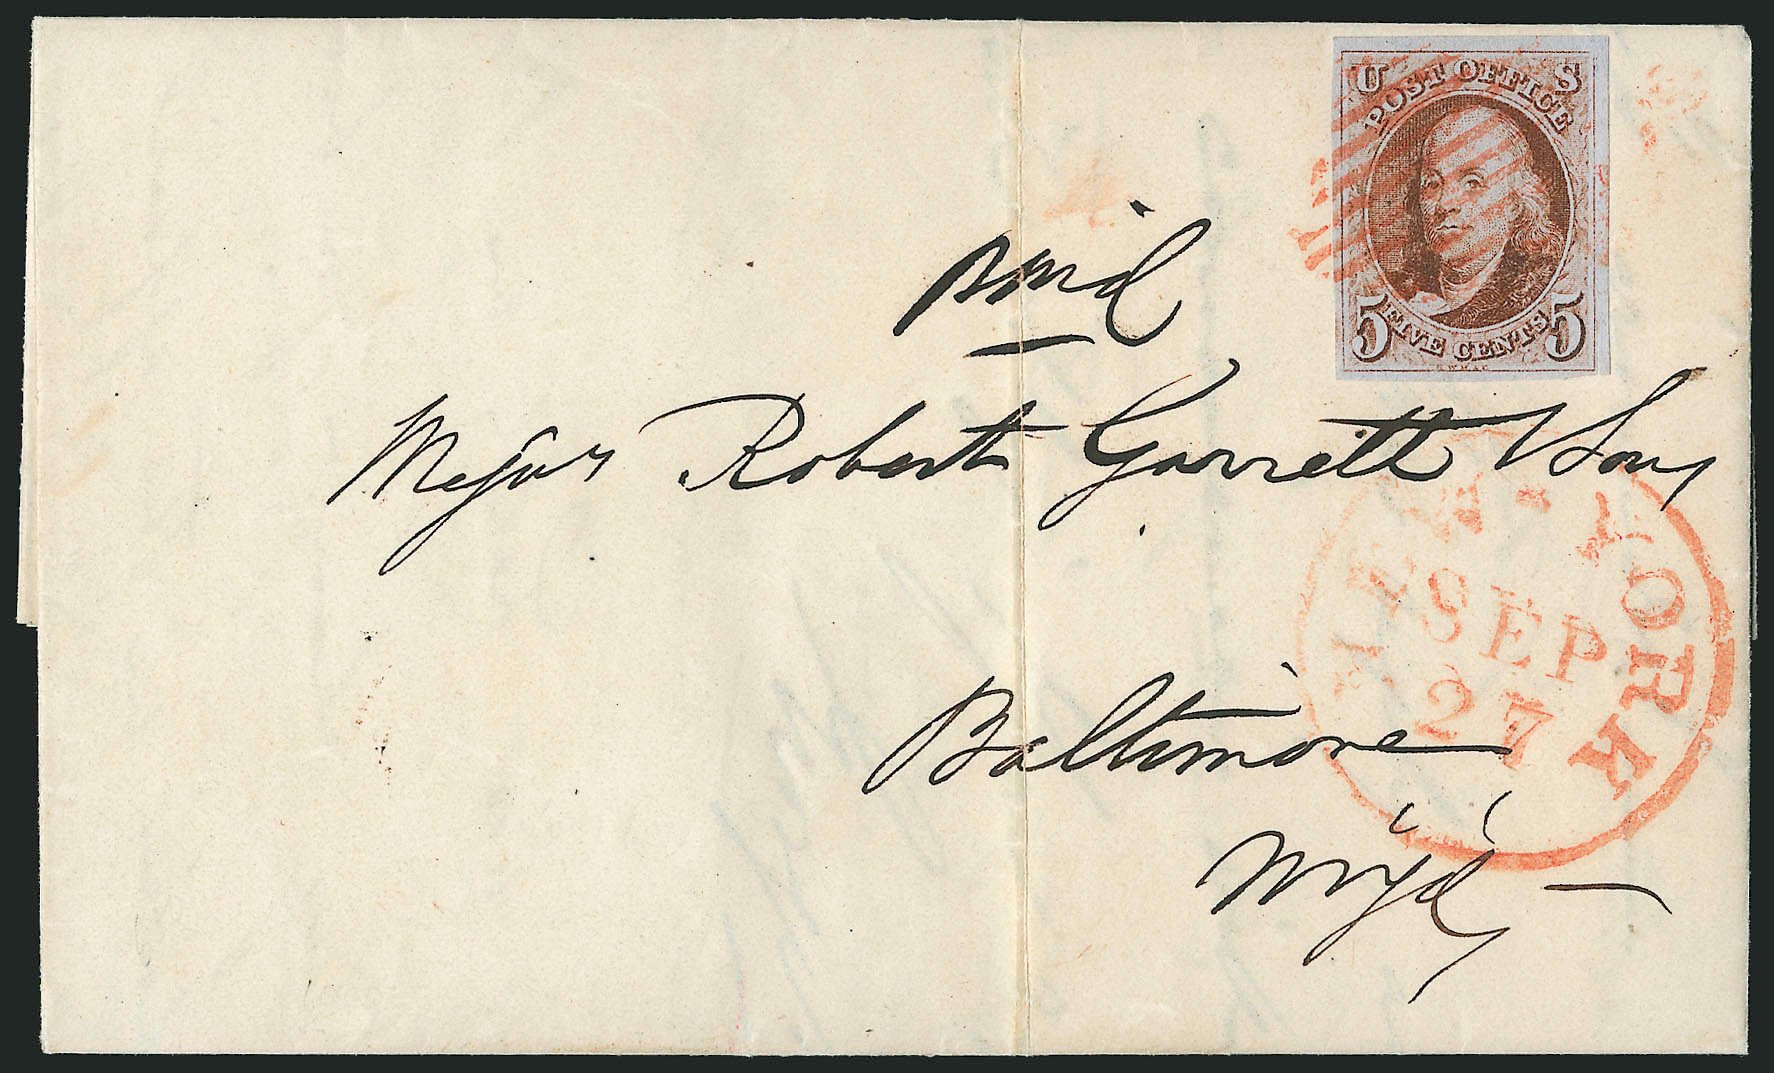 U S
POST OFFICE
FIVE CENTS
5 5
R.W.H.& E.
paid
Messrs Robert Garrett & Sons
NEW-YORK
SEP
27
Baltimore
Md